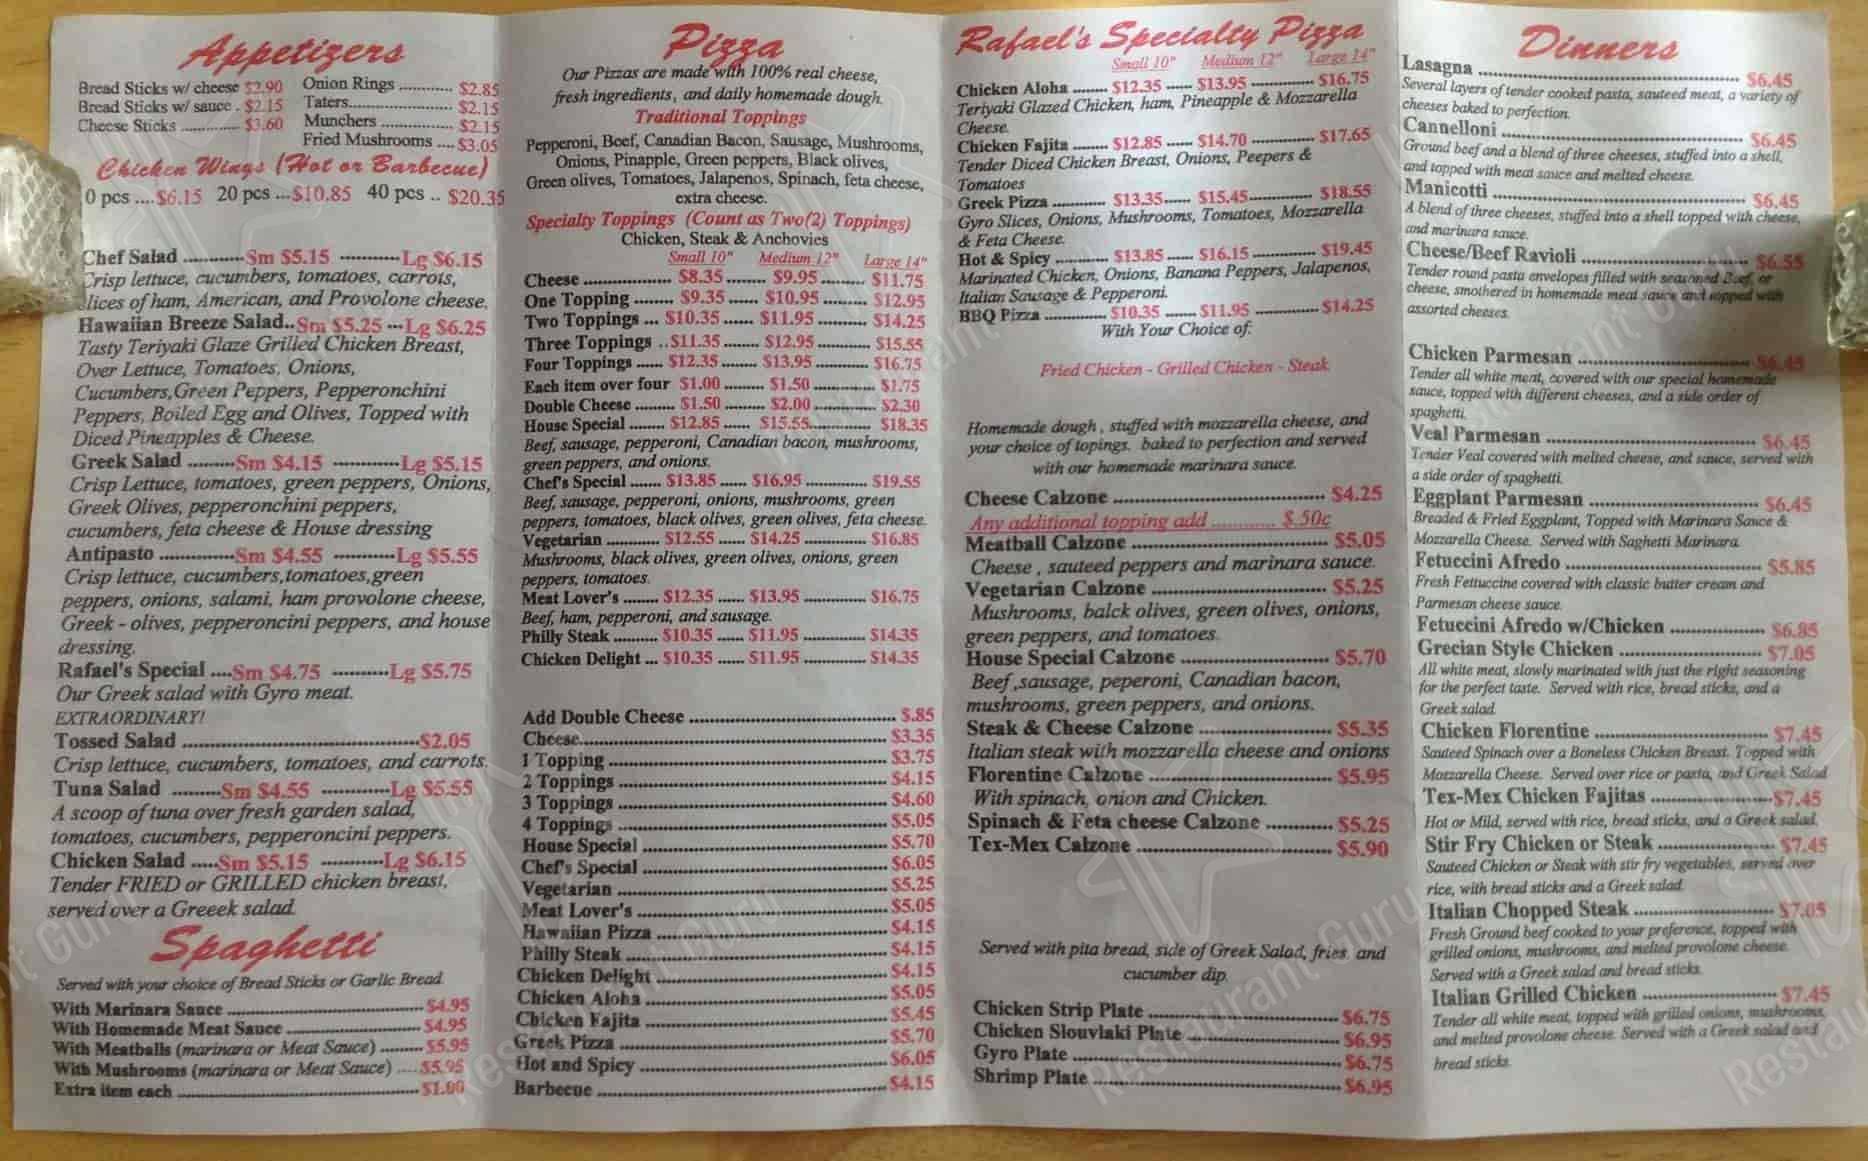 Appetizers
Bread Sticks w/ cheese $2.90
Bread Sticks w/ sauce . $2.15
Cheese Sticks ............. $3.60
Onion Rings ............ $2.85
Taters....................... $2.15
Munchers ................ $2.15
Fried Mushrooms .... $3.05
Chicken Wings (Hot or Barbecue)
0 pcs ....$6.15 20 pcs ...$10.85 40 pcs .. $20.35
Chef Salad ............Sm $5.15 ...........Lg $6.15
Crisp lettuce, cucumbers, tomatoes, carrots,
slices of ham, American, and Provolone cheese.
Hawaiian Breeze Salad..Sm $5.25 ...Lg $6.25
Tasty Teriyaki Glaze Grilled Chicken Breast,
Over Lettuce, Tomatoes, Onions,
Cucumbers,Green Peppers, Pepperonchini
Peppers, Boiled Egg and Olives, Topped with
Diced Pineapples & Cheese.
Greek Salad .........Sm $4.15 .............Lg $5.15
Crisp Lettuce, tomatoes, green peppers, Onions,
Greek Olives, pepperonchini peppers,
cucumbers, feta cheese & House dressing
Antipasto ..............Sm $4.55 ...........Lg $5.55
Crisp lettuce, cucumbers,tomatoes,green
peppers, onions, salami, ham provolone cheese,
Greek - olives, pepperoncini peppers, and house
dressing.
Rafael's Special ....Sm $4.75 ...........Lg $5.75
Our Greek salad with Gyro meat.
EXTRAORDINARY!
Tossed Salad .............................................$2.05
Crisp lettuce, cucumbers, tomatoes, and carrots.
Tuna Salad ...........Sm $4.55 .............Lg $5.55
A scoop of tuna over fresh garden salad,
tomatoes, cucumbers, pepperoncini peppers.
Chicken Salad .....Sm $5.15 ............Lg $6.15
Tender FRIED or GRILLED chicken breast,
served over a Greeek salad.
Spaghetti
Served with your choice of Bread Sticks or Garlic Bread
With Marinara Sauce ....................................... $4.95
With Homemade Meat Sauce ........................... $4.95
With Meatballs (marinara or Meat Sauce) ......... $5.95
With Mushrooms (marinara or Meat Sauce) .... $5.95
Extra item each ................................................ $1.00
Pizza
Our Pizzas are made with 100% real cheese,
fresh ingredients, and daily homemade dough.
Traditional Toppings
Pepperoni, Beef, Canadian Bacon, Sausage, Mushrooms,
Onions, Pinapple, Green peppers, Black olives,
Green olives, Tomatoes, Jalapenos, Spinach, feta cheese,
extra cheese.
Specialty Toppings (Count as Two(2) Toppings)
Chicken, Steak & Anchovies
Small 10" Medium 12" Large 14"
Cheese .................. $8.35 ........ $9.95 ......... $11.75
One Topping ........ $9.35 ..... $10.95 .......... $12.95
Two Toppings ... $10.35 ...... $11.95 .......... $14.25
Three Toppings ..$11.35 ...... $12.95 .......... $15.55
Four Toppings ..... $12.35 .... $13.95 ........... $16.75
Each item over four $1.00 ........ $1.50 ............. $1.75
Double Cheese ......... $1.50 ........ $2.00 ............. $2.30
House Special ........ $12.85 ..... $15.55............... $18.35
Beef, sausage, pepperoni, Canadian bacon, mushrooms,
green peppers, and onions.
Chef's Special ....... $13.85 ...... $16.95 .............. $19.55
Beef, sausage, pepperoni, onions, mushrooms, green
peppers, tomatoes, black olives, green olives, feta cheese.
Vegetarian ............ $12.55 ...... $14.25 ............. $16.85
Mushrooms, black olives, green olives, onions, green
peppers, tomatoes.
Meat Lover's ........ $12.35 ...... $13.95 .............. $16.75
Beef, ham, pepperoni, and sausage.
Philly Steak .......... $10.35 ...... $11.95 .............. $14.35
Chicken Delight ... $10.35 ...... $11.95 .............. $14.35
Add Double Cheese ............................................. $.85
Cheese................................................................. $3.35
1 Topping ........................................................... $3.75
2 Toppings .......................................................... $4.15
3 Toppings .......................................................... $4.60
4 Toppings .......................................................... $5.05
House Special ..................................................... $5.70
Chef's Special ..................................................... $6.05
Vegetarian .......................................................... $5.25
Meat Lover's ...................................................... $5.05
Hawaiian Pizza ................................................... $4.15
Philly Steak ......................................................... $4.15
Chicken Delight .................................................. $4.15
Chicken Aloha .................................................... $5.05
Chicken Fajita .................................................... $5.45
Greek Pizza ........................................................ $5.70
Hot and Spicy ..................................................... $6.05
Barbecue ............................................................. $4.15
Rafael's Specialty Pizza
Small 10" Medium 12" Large 14"
Chicken Aloha ........ $12.35 ...... $13.95 ............... $16.75
Teriyaki Glazed Chicken, ham, Pineapple & Mozzarella
Cheese.
Chicken Fajita ........ $12.85 ..... $14.70 .............. $17.65
Tender Diced Chicken Breast, Onions, Peepers &
Tomatoes
Greek Pizza ............ $13.35...... $15.45.............. $18.55
Gyro Slices, Onions, Mushrooms, Tomatoes, Mozzarella
& Feta Cheese.
Hot & Spicy ............ $13.85 ..... $16.15 .............. $19.45
Marinated Chicken, Onions, Banana Peppers, Jalapenos,
Italian Sausage & Pepperoni.
BBQ Pizza .............. $10.35 ...... $11.95 .............. $14.25
With Your Choice of:
Fried Chicken - Grilled Chicken - Steak
Homemade dough , stuffed with mozzarella cheese, and
your choice of topings. baked to perfection and served
with our homemade marinara sauce.
Cheese Calzone ........................................ $4.25
Any additional topping add ............. $.50c
Meatball Calzone ..................................... $5.05
Cheese , sauteed peppers and marinara sauce.
Vegetarian Calzone .................................. $5.25
Mushrooms, balck olives, green olives, onions,
green peppers, and tomatoes.
House Special Calzone ............................. $5.70
Beef ,sausage, peperoni, Canadian bacon,
mushrooms, green peppers, and onions.
Steak & Cheese Calzone .......................... $5.35
Italian steak with mozzarella cheese and onions
Florentine Calzone ................................... $5.95
With spinach, onion and Chicken.
Spinach & Feta cheese Calzone ............. $5.25
Tex-Mex Calzone ..................................... $5.90
Served with pita bread, side of Greek Salad, fries. and
cucumber dip.
Chicken Strip Plate ................................... $6.75
Chicken Slouvlaki Plate ............................ $6.95
Gyro Plate ................................................. $6.75
Shrimp Plate .............................................. $6.95
Dinners
Lasagna .......................................................... $6.45
Several layers of tender cooked pasta, sauteed meat, a variety of
cheeses baked to perfection.
Cannelloni ...................................................... $6.45
Ground beef and a blend of three cheeses, stuffed into a shell,
and topped with meat sauce and melted cheese.
Manicotti ........................................................ $6.45
A blend of three cheeses, stuffed into a shell topped with cheese,
and marinara sauce.
Cheese/Beef Ravioli ....................................... $6.55
Tender round pasta envelopes filled with seasoned Beef, or
cheese, smothered in homemade meat sauce and topped with
assorted cheeses.
Chicken Parmesan ......................................... $6.45
Tender all white meat, covered with our special homemade
sauce, topped with different cheeses, and a side order of
spaghetti.
Veal Parmesan ............................................... $6.45
Tender Veal covered with melted cheese, and sauce, served with
a side order of spaghetti.
Eggplant Parmesan ........................................ $6.45
Breaded & Fried Eggplant, Topped with Marinara Sauce &
Mozzarella Cheese. Served with Saghetti Marinara.
Fetuccini Afredo ............................................ $5.85
Fresh Fettuccine covered with classic butter cream and
Parmesan cheese sauce.
Fetuccini Afredo w/Chicken ...................... $6.85
Grecian Style Chicken .................................. $7.05
All white meat, slowly marinated with just the right seasoning
for the perfect taste. Served with rice, bread sticks, and a
Greek salad.
Chicken Florentine ........................................ $7.45
Sauteed Spinach over a Boneless Chicken Breast. Topped with
Mozzarella Cheese. Served over rice or pasta, and Greek Salad
Tex-Mex Chicken Fajitas ..........................$7.45
Hot or Mild, served with rice, bread sticks, and a Greek salad.
Stir Fry Chicken or Steak .......................... $7.45
Sauteed Chicken or Steak with stir fry vegetables, served over
rice, with bread sticks and a Greek salad.
Italian Chopped Steak ................................ $7.05
Fresh Ground beef cooked to your preference, topped with
grilled onions, mushrooms, and melted provolone cheese.
Served with a Greek salad and bread sticks.
Italian Grilled Chicken ............................... $7.45
Tender all white meat, topped with grilled onions, mushrooms,
and melted provolone cheese. Served with a Greek salad and
bread sticks.
Restaurant Guru